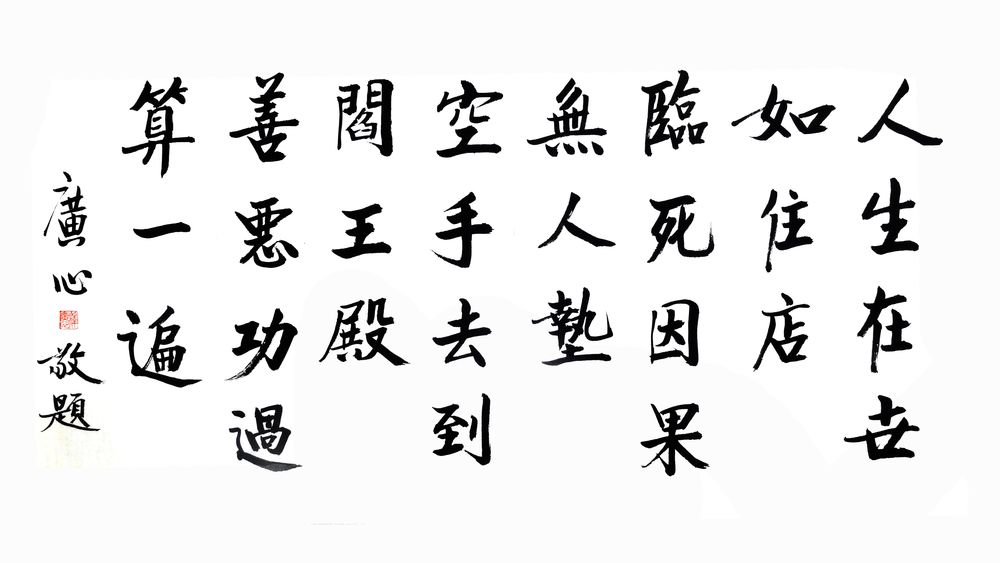 人生在世
如住店
臨死因果
無人墊
空手去到
閻王殿
善惡功過
算一遍
廣心敬題